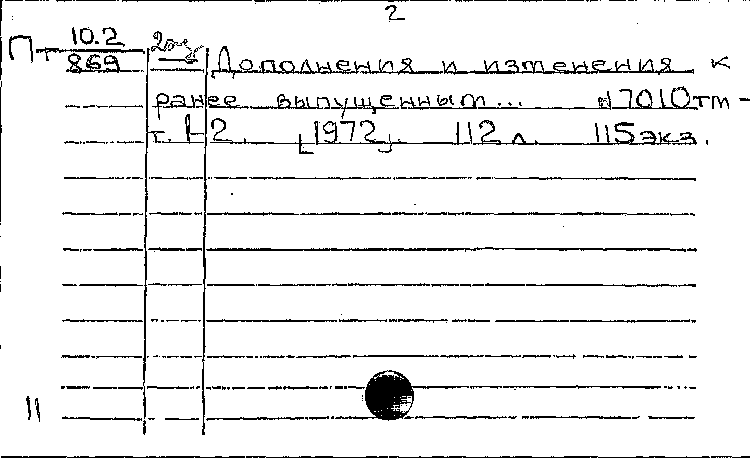 2
Пт 10.2
869
2 экз
Дополнения и изменения к
ранее выпущенным... N7010тм-
т. 1-2. [1972]. 112 л. 115 экз.
11